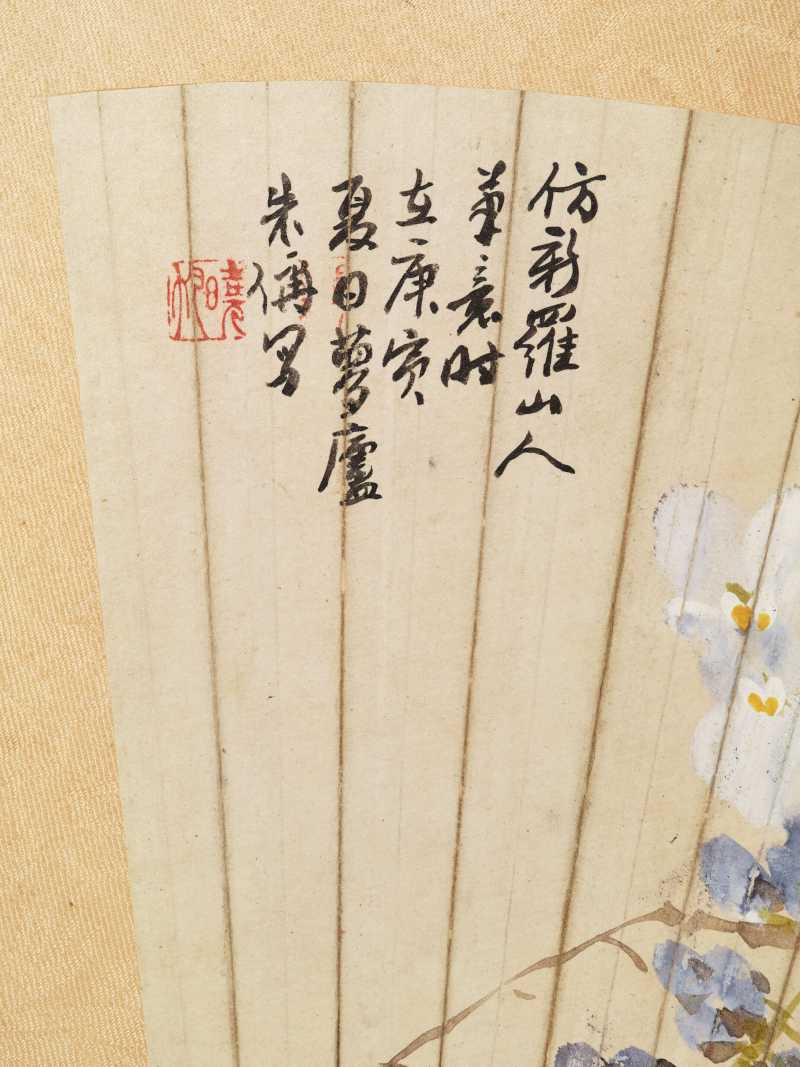 仿新羅山人
筆意时
在庚寅
夏日夢廬
朱偁写